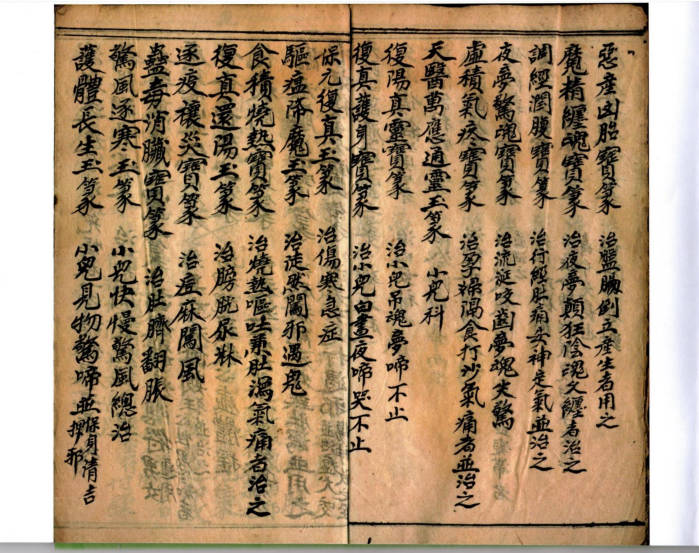 惡產凶胎寶篆 治盤腸倒立產生者用之
魔精纏魂寶篆 治夜夢顛狂陰魂交纏者治之
調經潤腹寶篆 治行經肚痛失神走氣並治之
夜夢驚魂寶篆 治流涎咬齒夢魂失驚
虛積氣疼寶篆 治孕婦隔食打沙氣痛者並治之
天醫萬應通靈玉篆 小兒科
復陽真靈寶篆 治小兒吊魂夢啼不止
復真護身寶篆 治小兒白晝夜啼哭不止
保元復真玉篆 治傷寒急症
驅瘟降魔玉篆 治徒然鬧邪遇鬼
食積燒熱寶篆 治燒熱嘔吐兼肚瀉氣痛者治之
復真還陽玉篆 治膀胱尿淋
逐疫禳災寶篆 治痘麻闖風
蠱毒消臟寶篆 治肚臍翻脹
驚風逐寒玉篆 小兒快慢驚風總治
護體長生玉篆 小兒見物驚啼並保身清吉 邪